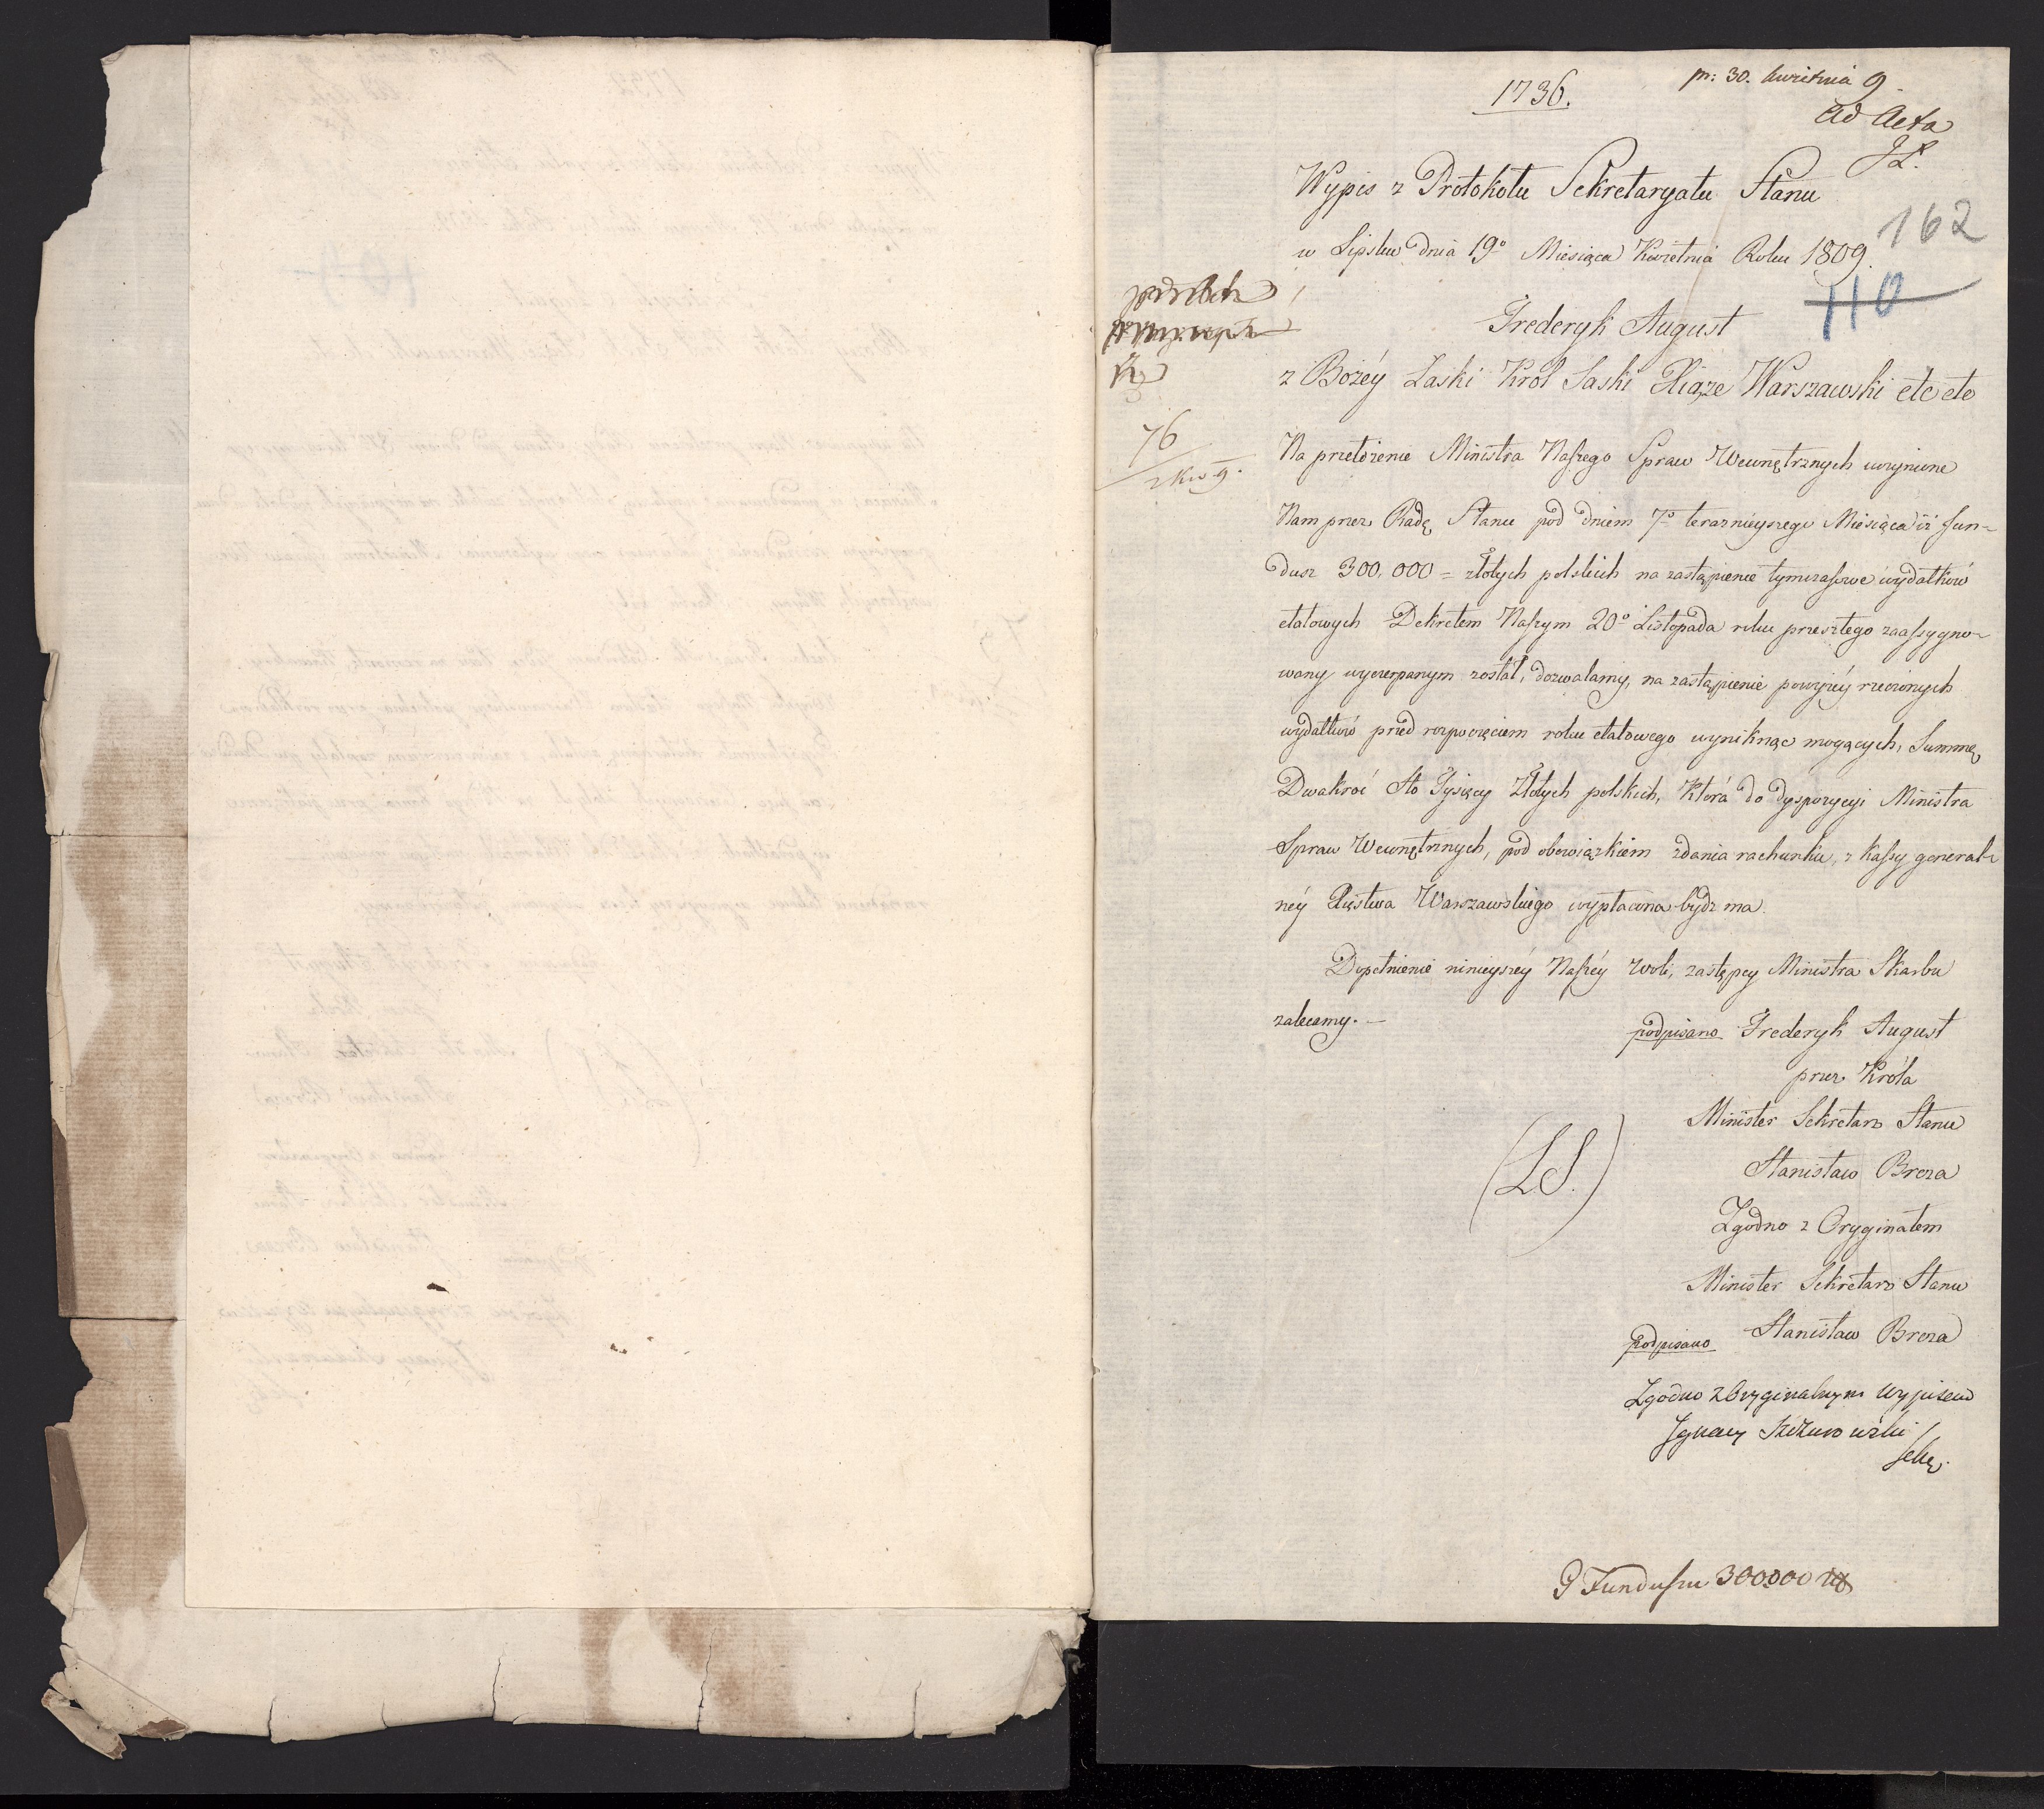 1736.
pr: 30. kwietnia 9.
Ad Acta
JŁ.
Wypis z Protokołu Sekretaryatu Stanu
162
w Lipsku dnia 19º Miesiąca Kwietnia Roku 1809.
110
Frederyk August
z Bożéy Łaski Król Saski Xiąże Warszawski etc etc
76
Na przełożenie Ministra Naszego Spraw Wewnętrznych uczynione
Nam przez Radę Stanu pod dniem 7º terazniejszego Miesiąca iż fun-
dusz 300,000 = złotych polskich na zastąpienie tymczasowe wydatków
etatowych Dekretem Naszym 20º Listopada roku przeszłego zaassygno-
wany wyczerpanym został, dozwalamy, na zastąpienie powyżéy rzeczonych
wydatków przed rozpoczęciem roku etatowego wyniknąc mogących, Summę
Dwakroć Sto Tysięcy Złotych polskich, Która do dyspozycyi Ministra
Spraw Wewnętrznych, pod obowiązkiem zdania rachunku, z Kassy general-
néy Xięstwa Warszawskiego wypłacona bydz ma.
Dopełnienie ninieyszéy Naszéy woli, zastępcy Ministra Skarbu
zalecamy. —
podpisano Frederyk August
przez Króla
Minister Sekretarz Stanu
(LS.)
Stanisław Breza
Zgodno z Oryginałem
Minister Sekretarz Stanu
podpisano Stanisław Breza
Zgodno z Oryginalnym Wypisem
Ignacy
Sekr.
O Funduszu 300000 zł